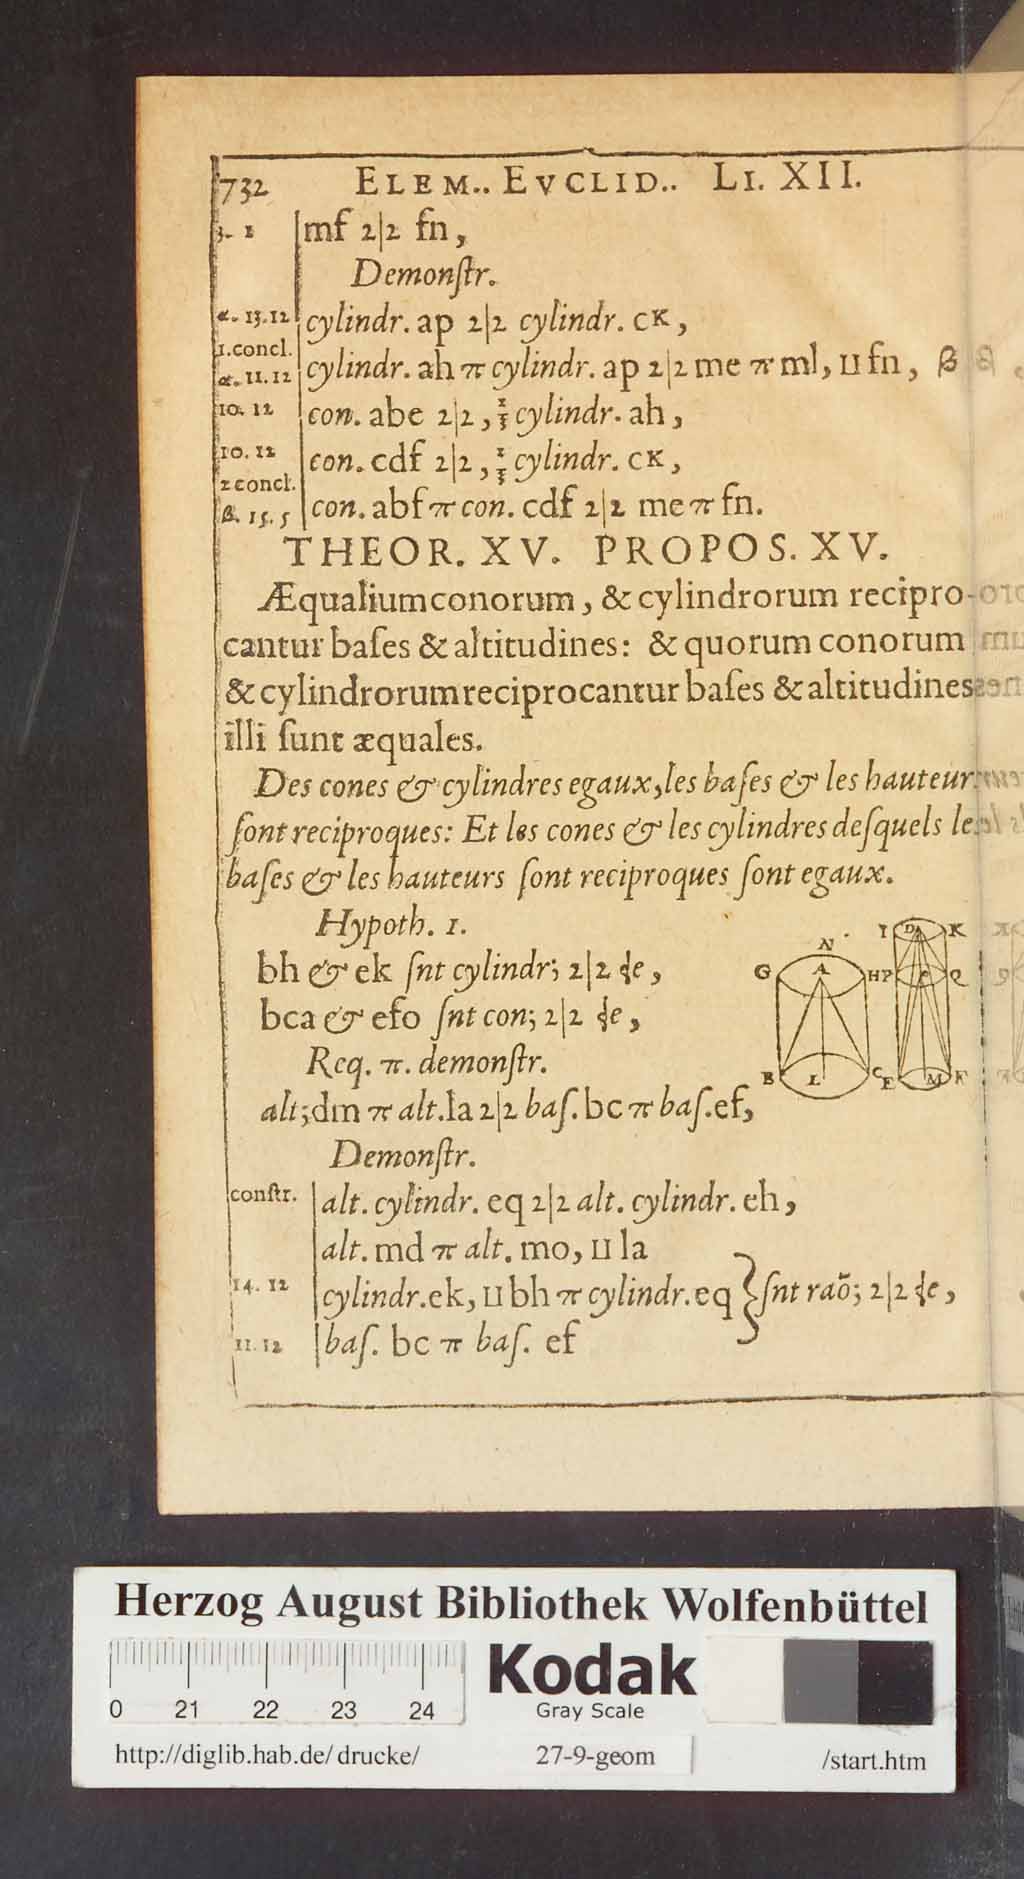 732 ELEM.. EVCLID.. LI. XII.
3. 1 mf 2|2 fn,
Demonſtr.
α. 13.12 cylindr. ap 2|2 cylindr. cκ,
1.concl.
α. 11.12 cylindr. ah π cylindr. ap 2|2 me π ml, ⊔ fn, β
10. 12 con. abe 2|2, ⅓ cylindr. ah,
10. 12 con. cdf 2|2, ⅓ cylindr. cκ,
2 concl.
β. 15. 5 con. abf π con. cdf 2|2 me π fn.
THEOR. XV. PROPOS. XV.
Æqualium conorum, & cylindrorum recipro-
cantur baſes & altitudines: & quorum conorum
& cylindrorum reciprocantur baſes & altitudines
illi ſunt æquales.
Des cones & cylindres egaux, les baſes & les hauteur
ſont reciproques: Et les cones & les cylindres deſquels le
baſes & les hauteurs ſont reciproques ſont egaux.
Hypoth. 1.
bh & ek ſnt cylindr; 2|2 ɖe,
bca & efo ſnt con; 2|2 ɖe,
Req. π. demonſtr.
alt; dm π alt. la 2|2 baſ. bc π baſ. ef,
N
I D K
G A H P Q
B L C E M F
Demonſtr.
conſtr. alt. cylindr. eq 2|2 alt. cylindr. eh,
alt. md π alt. mo, ⊔ la
14. 12 cylindr. ek, ⊔ bh π cylindr. eq } ſnt raõ; 2|2 ɖe,
11. 12 baſ. bc π baſ. ef
Herzog August Bibliothek Wolfenbüttel
Kodak
Gray Scale
0 21 22 23 24
http://diglib.hab.de/drucke/ 27-9-geom /start.htm